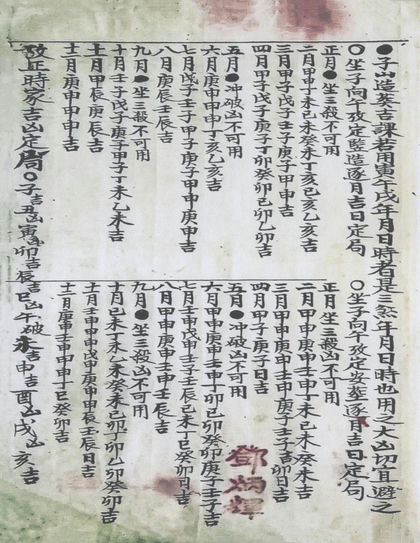 ●子山造葬吉課若用寅午戌年月日時者是三煞年月日時也用之大凶切宜避之
〇坐子向午攷定監造逐月吉日定局
正月●坐三殺不可用
二月甲申丁未己未癸未丁亥己亥乙亥癸亥吉
三月甲子戊子壬子庚子甲申吉
四月甲子戊子庚子丁卯癸卯己卯乙卯吉
五月●冲破凶不可用
六月庚申甲申丁亥乙亥吉
七月戊子壬子甲子庚子甲申庚申吉
八月庚辰壬辰吉
九月●坐三殺不可用
十月壬子戊子庚子甲子丁未乙未吉
十一月甲辰庚辰吉
十二月庚申甲申吉
〇坐子向午攷定安葬逐月吉日定局
正月坐三殺凶不可用
二月甲申庚申壬申丁未己未癸未吉
三月甲申庚申壬申庚子壬子吉
四月甲子庚子日吉
五月●冲破凶不可用
六月甲申庚申壬申丁卯癸卯庚子壬子吉
七月壬申戊申庚申壬子壬辰丁未丁巳癸巳吉
八月甲申庚申壬申壬辰吉
九月●坐三殺凶不可用
十月己未丁未乙未癸未己卯丁卯乙卯癸卯吉
十一月壬申甲申戊申庚申甲辰壬辰日吉
十二月庚申壬申甲申丁巳癸卯吉
攷正時家吉凶定局〇子吉丑凶寅凶卯吉辰吉巳凶午破未吉申吉酉凶戌凶亥吉
鄧炳輝